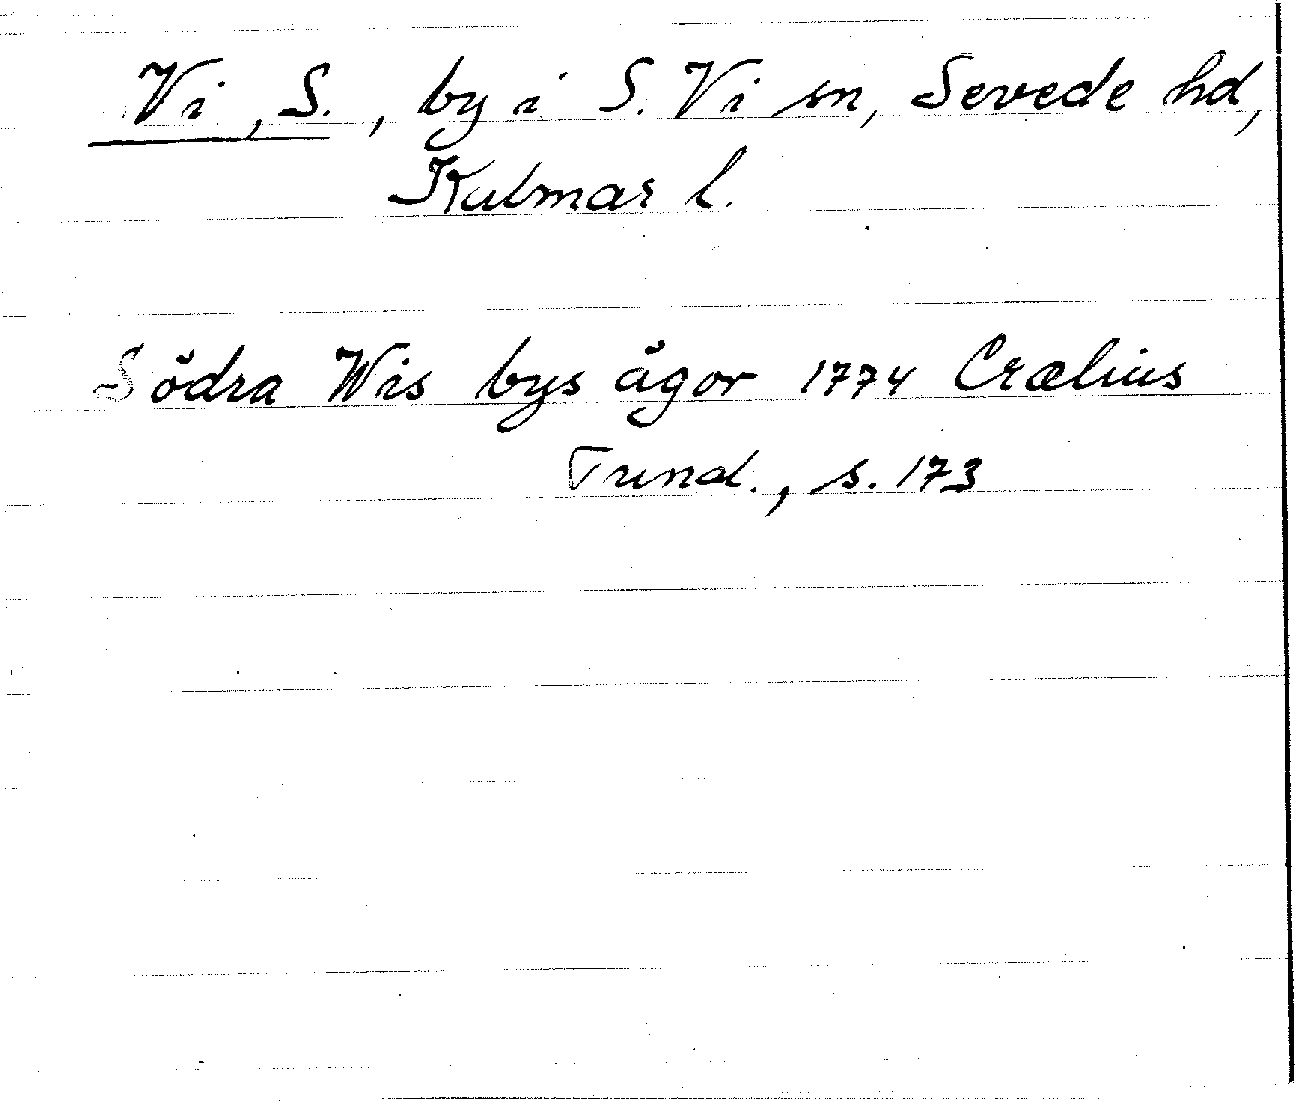 Vi, S., by i S. Vi sn, Sevede hd,
Kalmar l.
Södra Wis bys ägor 1774 Crælius
Tunal., s. 173